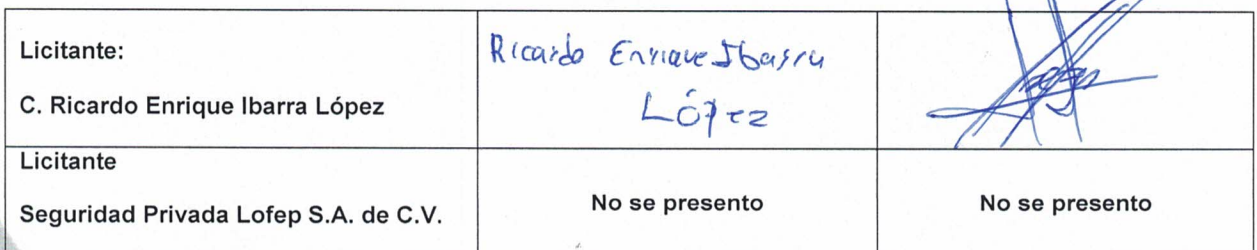 Licitante:
C. Ricardo Enrique Ibarra López
Ricardo Enrique Ibarra
López
Licitante
Seguridad Privada Lofep S.A. de C.V.
No se presento
No se presento